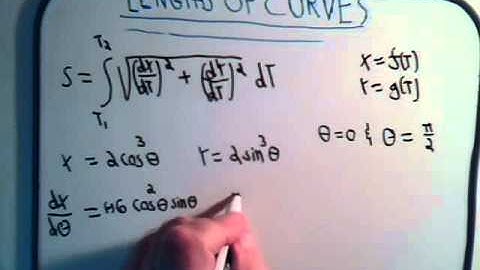 LENGTHS OF CURVES
S = ∫_{T₁}^{T₂} √((dx/dT)² + (dr/dT)²) dT
x = f(T)
r = g(T)
x = 2cos³θ r = 2sin³θ
θ = 0 & θ = π/2
dx/dθ = +6 cos²θ sinθ